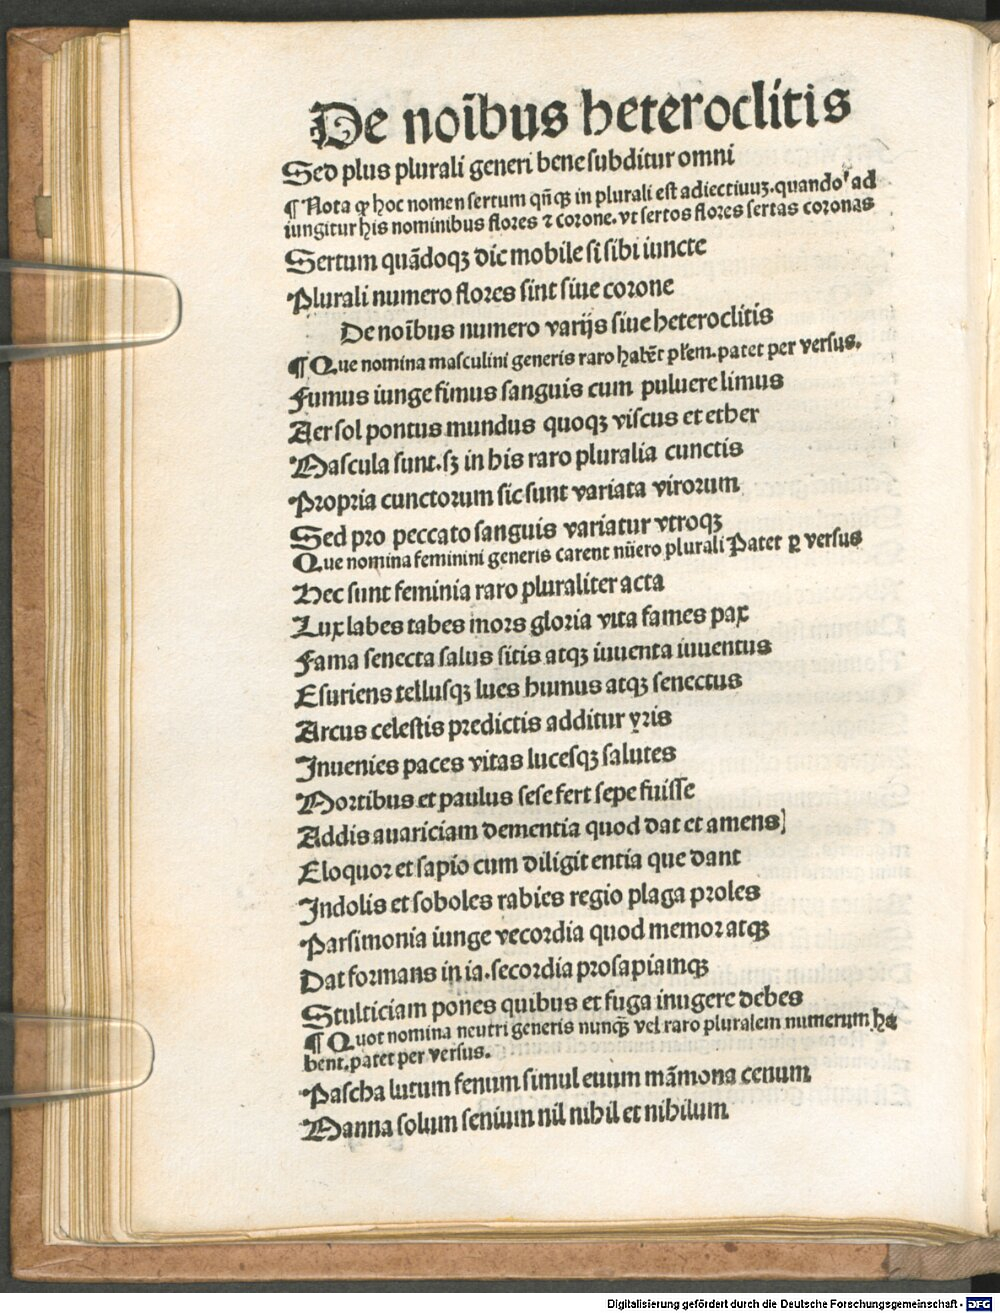 De noībus heteroclitis
Sed plus plurali generi bene subditur omni
¶ Nota ꝙ hoc nomen sertum qn̄qꝫ in plurali est adiectiuuꝫ. quando' ad
iungitur his nominibus flores ⁊ corone. vt sertos flores sertas coronas
Sertum quādoqꝫ dic mobile si sibi iuncte
Plurali numero flores sint siue corone
De noībus numero varijs siue heteroclitis
¶ Que nomina masculini generis raro habēt płem. patet per versus.
Fumus iunge fimus sanguis cum puluere limus
Aer sol pontus mundus quoqꝫ viscus et ether
Mascula sunt. sꝫ in his raro pluralia cunctis
Propria cunctorum sic sunt variata virorum
Sed pro peccato sanguis variatur vtroqꝫ
Que nomina feminini generis carent nūero plurali Patet ꝑ versus
Hec sunt feminia raro pluraliter acta
Lux labes tabes mors gloria vita fames pax
Fama senecta salus sitis atqꝫ iuuenta iuuentus
Esuriens tellusqꝫ lues humus atqꝫ senectus
Arcus celestis predictis additur yris
Inuenies paces vitas lucesqꝫ salutes
Mortibus et paulus sese fert sepe fuisse
Addis auariciam dementia quod dat et amens]
Eloquor et sapio cum diligit entia que dant
Indolis et soboles rabies regio plaga proles
Parsimonia iunge vecordia quod memor atqꝫ
Dat formans in ia. secordia prosapiamqꝫ
Stulticiam pones quibus et fuga inugere debes
¶ Quot nomina neutri generis nunqꝫ̄ vel raro pluralem numerum ha
bent. patet per versus.
Pascha lutum fenum simul euum māmona cenum
Manna solum senium nil nihil et nihilum
Digitalisierung gefördert durch die Deutsche Forschungsgemeinschaft - DFG